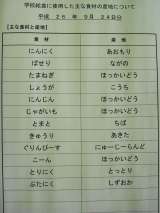 学校給食に使用した主な食材の産地について
平成 26年 9月 24日分
【主な食材と産地】
食材 産地
にんにく あおもり
ぱせり ながの
たまねぎ ほっかいどう
しょうが こうち
にんじん ほっかいどう
じゃがいも ほっかいどう
とまと ちば
きゅうり あきた
ぐりんぴーす にゅーじーらんど
こーん ほっかいどう
とりにく とっとり
ぶたにく しずおか